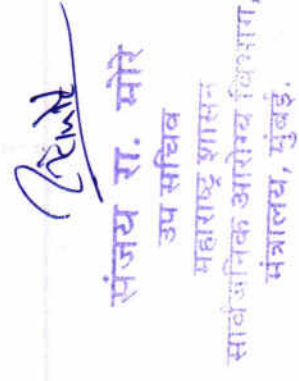 संजय रा. मोरे
उप सचिव
महाराष्ट्र शासन
सार्वजनिक आरोग्य विभाग,
मंत्रालय, मुंबई.